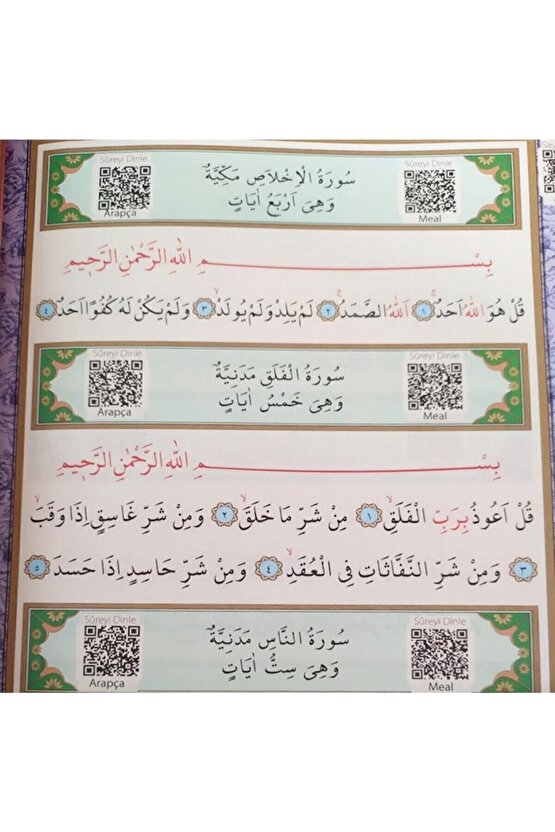 Sûreyi Dinle
سُورَةُ الْاِخْلَاصِ مَكِّيَّةٌ
Sûreyi Dinle
وَهِىَ اَرْبَعُ اٰيَاتٍ
Arapça
Meal
بِسْمِ اللهِ الرَّحْمٰنِ الرَّحٖيمِ
قُلْ هُوَ اللهُ اَحَدٌۚ ١ اَللهُ الصَّمَدُۚ ٢ لَمْ يَلِدْ وَلَمْ يُولَدْۙ ٣ وَلَمْ يَكُنْ لَهُ كُفُوًا اَحَدٌ ٤
Sûreyi Dinle
سُورَةُ الْفَلَقِ مَدَنِيَّةٌ
Sûreyi Dinle
وَهِىَ خَمْسُ اٰيَاتٍ
Arapça
Meal
بِسْمِ اللهِ الرَّحْمٰنِ الرَّحٖيمِ
قُلْ اَعُوذُ بِرَبِّ الْفَلَقِۙ ١ مِنْ شَرِّ مَا خَلَقَۙ ٢ وَمِنْ شَرِّ غَاسِقٍ اِذَا وَقَبَۙ
٣ وَمِنْ شَرِّ النَّفَّاثَاتِ فِى الْعُقَدِۙ ٤ وَمِنْ شَرِّ حَاسِدٍ اِذَا حَسَدَ ٥
Sûreyi Dinle
سُورَةُ النَّاسِ مَدَنِيَّةٌ
Sûreyi Dinle
وَهِىَ سِتُّ اٰيَاتٍ
Arapça
Meal